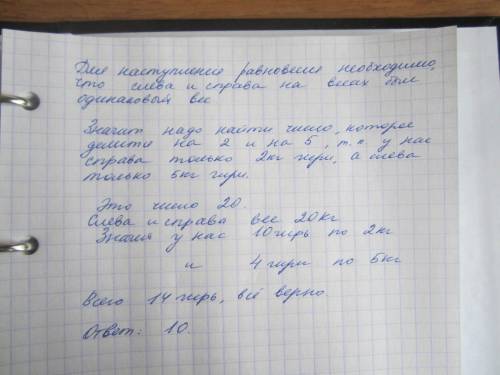 Для наступления равновесия необходимо,
что слева и справа на весах был
одинаковый вес
Значит надо найти число, которое
делится на 2 и на 5, т.к. у нас
справа только 2кг гири, а слева
только 5кг гири.
Это число 20.
Слева и справа вес 20кг
Значит у нас 10 гирь по 2кг
и 4 гири по 5кг
Всего 14 гирь, всё верно.
Ответ: 10.